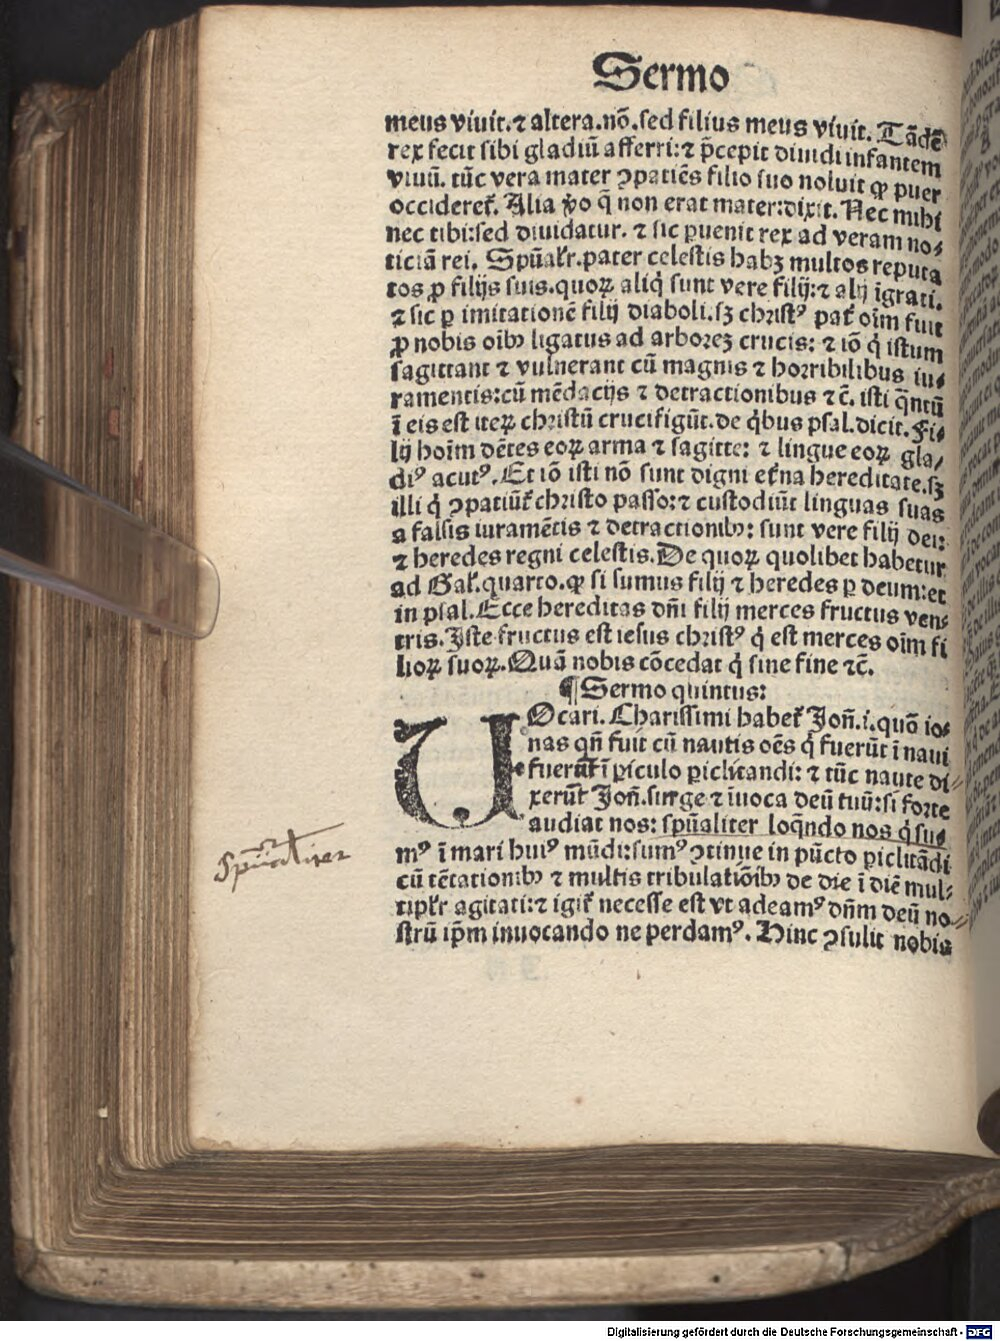 Sermo
meus viuit.⁊ altera.nõ.sed filius meus viuit. Tãdẽ
rex fecit sibi gladiũ afferri:⁊ p̃cepit diuidi infantem
viuũ. tũc vera mater ꝯpatiẽs filio suo noluit ꝙ puer
occideret᷑. Alia ꝟo q̃ non erat mater:dixit. Nec mihi
nec tibi:sed diuidatur. ⁊ sic ꝑuenit rex ad veram no⸗
ticiã rei. Spũal'r.pater celestis habꝫ multos reputa
tos ꝓ filijs suis.quoꝝ aliq̇ sunt vere filij:⁊ alij ĩgrati.
⁊ sic ꝑ imitationẽ filij diaboli.sꝫ christꝰ pat᷑ oĩm fuit
ꝓ nobis oĩbꝰ ligatus ad arborẽ crucis: ⁊ iõ q̇ istum
sagittant ⁊ vulnerant cũ magnis ⁊ horribilibus iu⸗
ramentis:cũ mẽdacijs ⁊ detractionibus ⁊ c̃. isti q̃ntũ
ĩ eis est iteꝝ christũ crucifigũt.de q̇bus psal.dicit.Fi⸗
lij hoĩm dẽtes eoꝝ arma ⁊ sagitte: ⁊ lingue eoꝝ gla⸗
diꝰ acutꝰ. Et iõ isti nõ sunt digni et᷑na hereditate.sꝫ
illi q̇ ꝯpatiũt᷑ christo passo:⁊ custodiũt linguas suas
a falsis iuramẽtis ⁊ detractionibꝰ: sunt vere filij dei:
⁊ heredes regni celestis.De quoꝝ quolibet habetur
ad Gal'.quarto.ꝙ si sumus filij ⁊ heredes ꝑ deum:et
in psal.Ecce hereditas dñi filij merces fructus ven⸗
tris. Iste fructus est iesus christꝰ q̇ est merces oĩm fi
lioꝝ suoꝝ.Quã nobis cõcedat q̇ sine fine ⁊c̃.
¶ Sermo quintus:
UOcari. Charissimi habet᷑ Joñ.i.quõ io⸗
nas qñ fuit cũ nautis oẽs q̇ fuerũt ĩ naui
fuerũt ĩ ꝑiculo ꝑiclitandi: ⁊ tũc naute di⸗
xerũt Joñ.surge ⁊ ĩuoca deũ tuũ:si forte
audiat nos: spũaliter loq̃ndo nos q̇ su⸗
mꝰ ĩ mari huiꝰ mũdi:sumꝰ ꝯtinue in pũcto ꝑiclitãdi
Spũaliter
cũ tẽtationibꝰ ⁊ multis tribulatiõibꝰ de die ĩ diẽ mul⸗
tipl'r agitati:⁊ igit᷑ necesse est vt adeamꝰ dñm deũ no⸗
strũ ip̃m inuocando ne perdamꝰ. Hinc ꝯsulit nobis
Digitalisierung gefördert durch die Deutsche Forschungsgemeinschaft - DFG